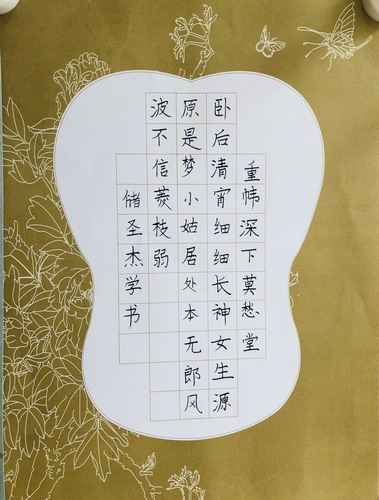 重帏深下莫愁堂
卧后清宵细细长神女生源
原是梦小姑居处本无郎风
波不信菱枝弱
储圣杰学书